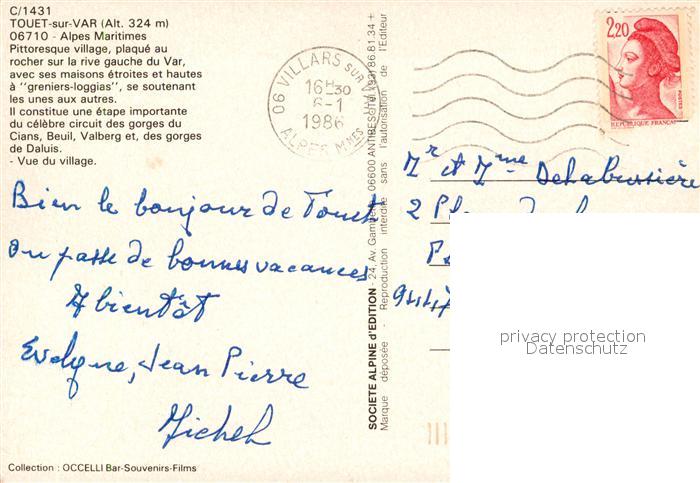 C/1431
TOUET-sur-VAR (Alt. 324 m)
06710 - Alpes Maritimes
Pittoresque village, plaqué au
rocher sur la rive gauche du Var,
avec ses maisons étroites et hautes
à "greniers-loggias", se soutenant
les unes aux autres.
Il constitue une étape importante
du célèbre circuit des gorges du
Cians, Beuil, Valberg et, des gorges
de Daluis.
- Vue du village.
Bien le bonjour de Touet
on passe de bonnes vacances
A bientôt
Evelyne, Jean Pierre
Michel
Collection : OCCELLI Bar-Souvenirs-Films
SOCIETE ALPINE d'EDITION - 24, Av. Gambetta 06600 ANTIBES (TEL. (93) 86.81.34 +
Marque déposée - Reproduction interdite sans l'autorisation de l'Editeur
06 VILLARS sur VAR
16H30
6-1
1986
ALPES Mmes
2,20
POSTES
REPUBLIQUE FRANÇAISE
Mr et Mme Delabussière
2
privacy protection
Datenschutz